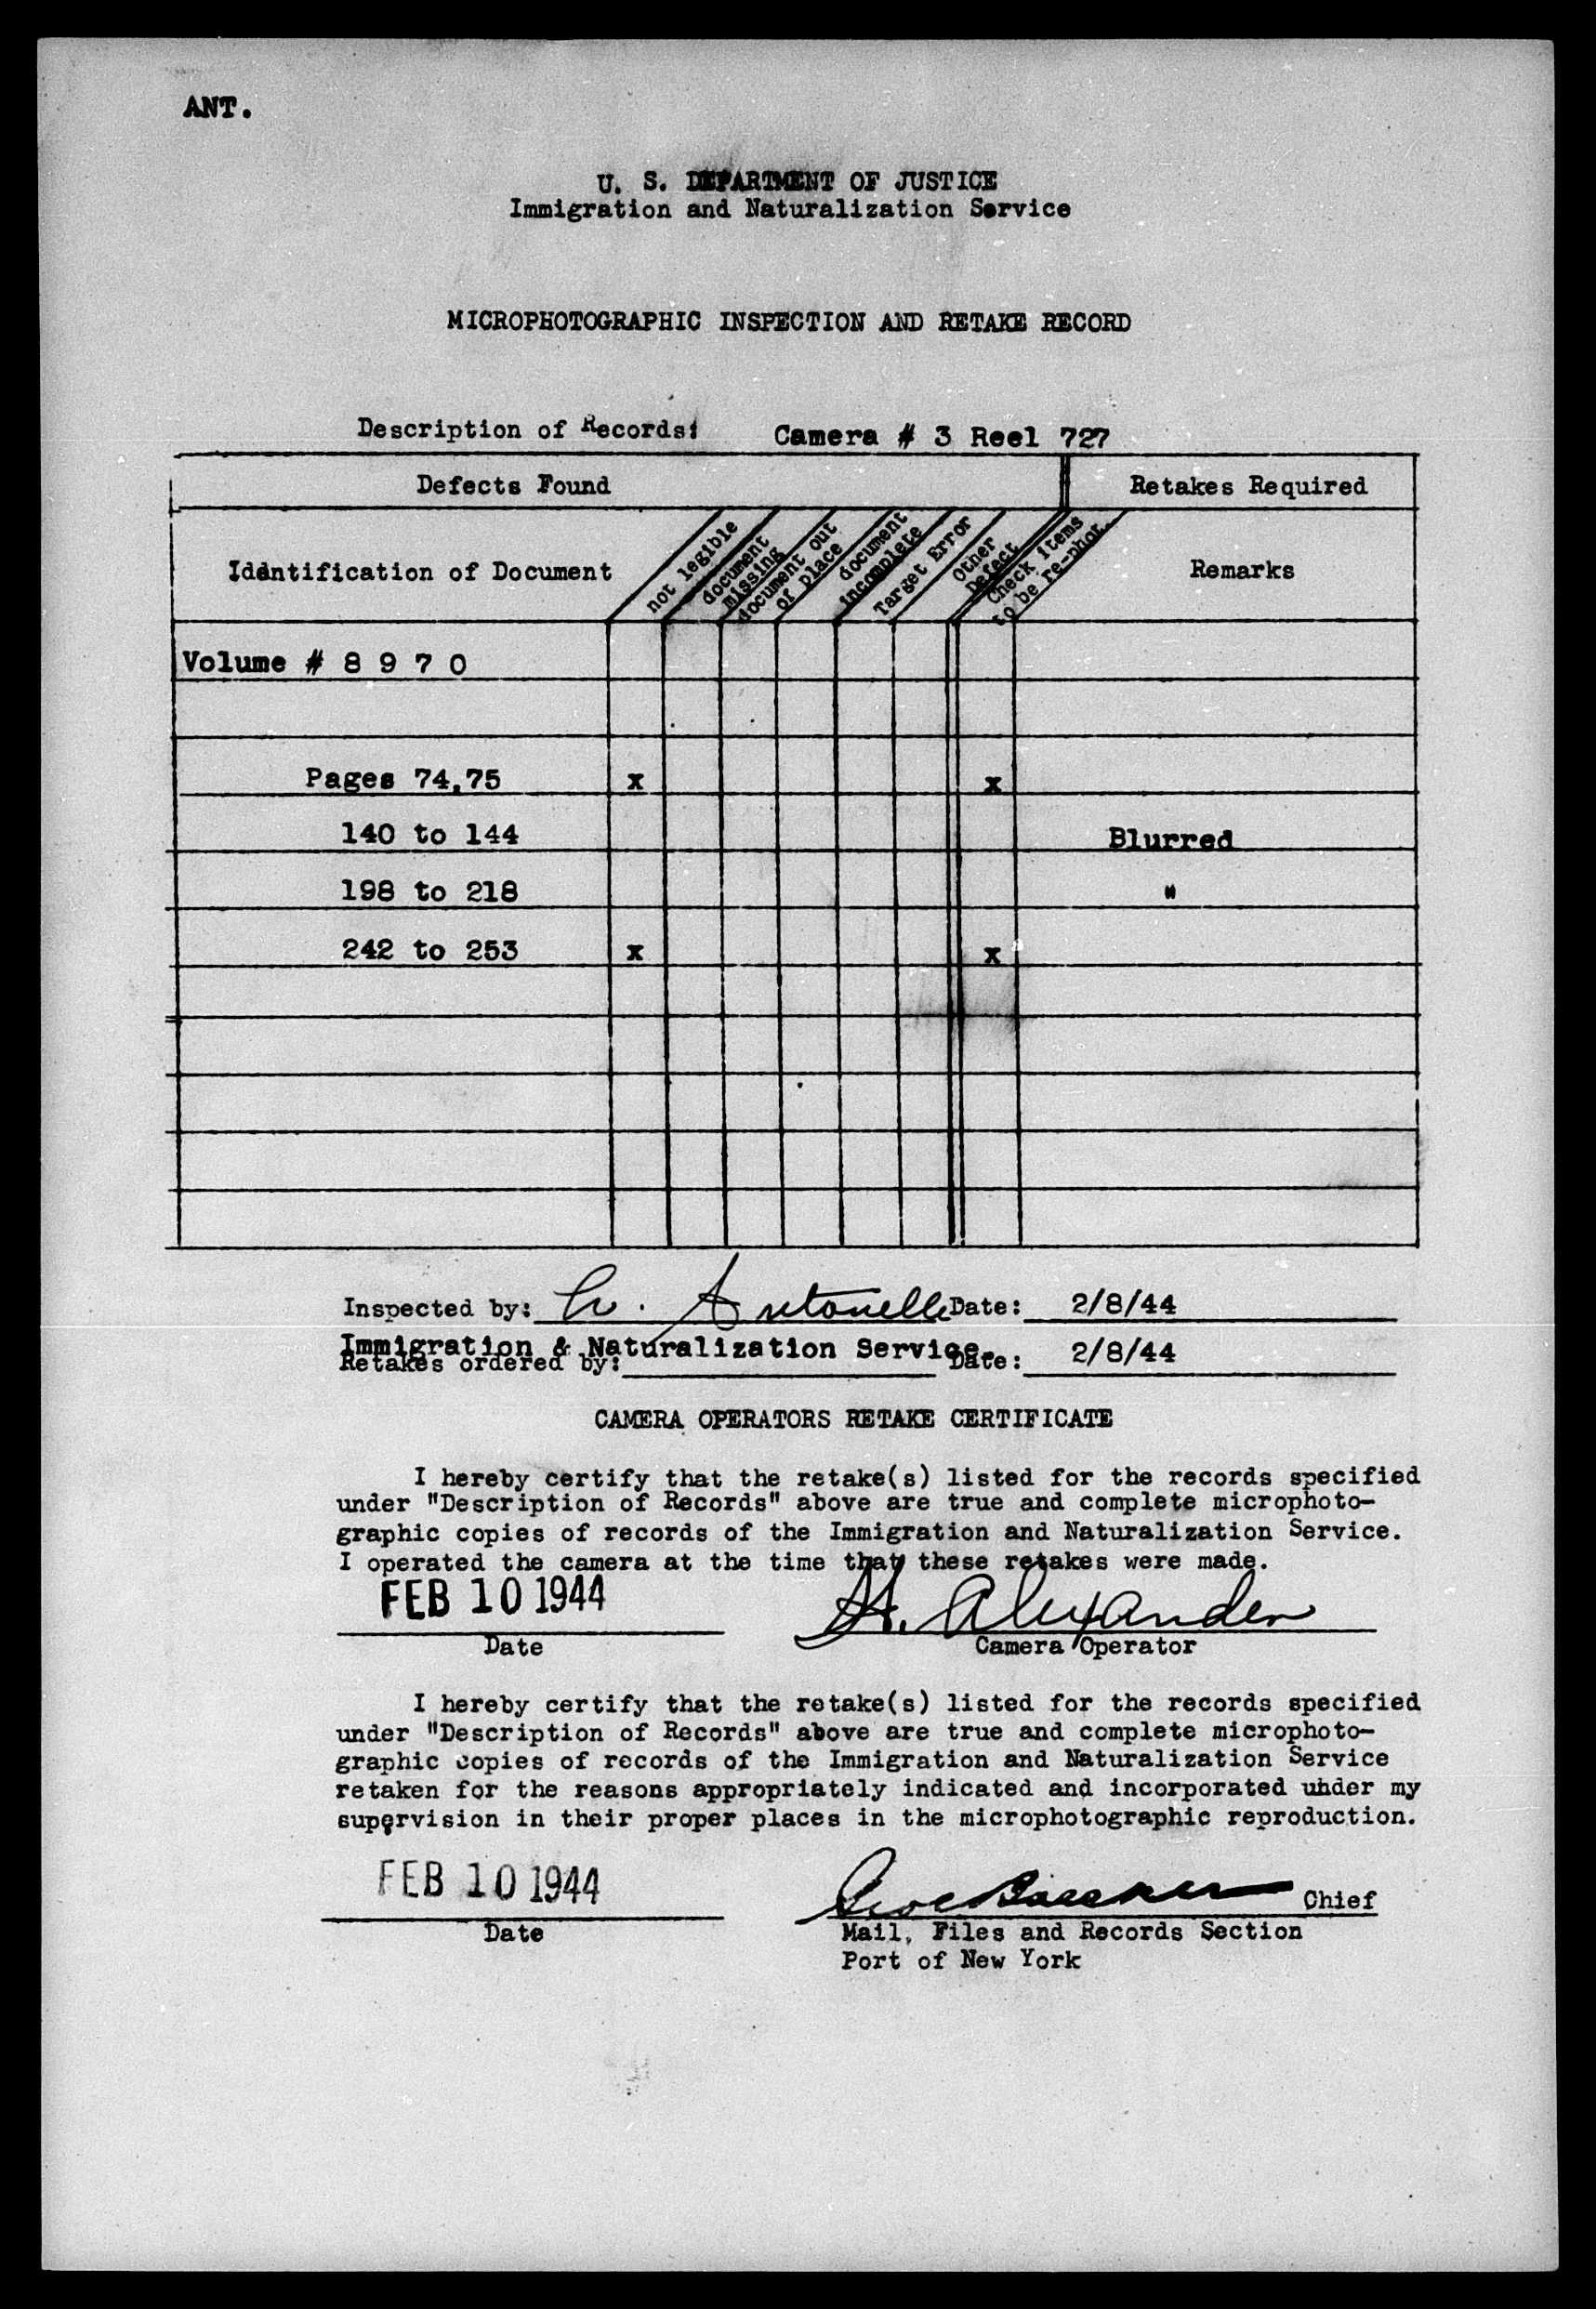 ANT.
U. S. DEPARTMENT OF JUSTICE
Immigration and Naturalization Service
MICROPHOTOGRAPHIC INSPECTION AND RETAKE RECORD
Description of Records: Camera # 3 Reel 727
Defects Found Retakes Required
Identification of Document
not legible
document
missing
document out
of place
document
incomplete
Target Error
Other
Defect
Check items
to be re-phot.
Remarks
Volume # 8 9 7 0
Pages 74,75 x x
140 to 144 Blurred
198 to 218 "
242 to 253 x x
Inspected by: Antonelli Date: 2/8/44
Immigration & Naturalization Service.
Retakes ordered by: Date: 2/8/44
CAMERA OPERATORS RETAKE CERTIFICATE
I hereby certify that the retake(s) listed for the records specified
under "Description of Records" above are true and complete microphoto-
graphic copies of records of the Immigration and Naturalization Service.
I operated the camera at the time that these retakes were made.
FEB 10 1944 H. Alexander
Date Camera Operator
I hereby certify that the retake(s) listed for the records specified
under "Description of Records" above are true and complete microphoto-
graphic copies of records of the Immigration and Naturalization Service
retaken for the reasons appropriately indicated and incorporated under my
supervision in their proper places in the microphotographic reproduction.
FEB 10 1944 Chief
Date Mail, Files and Records Section
Port of New York